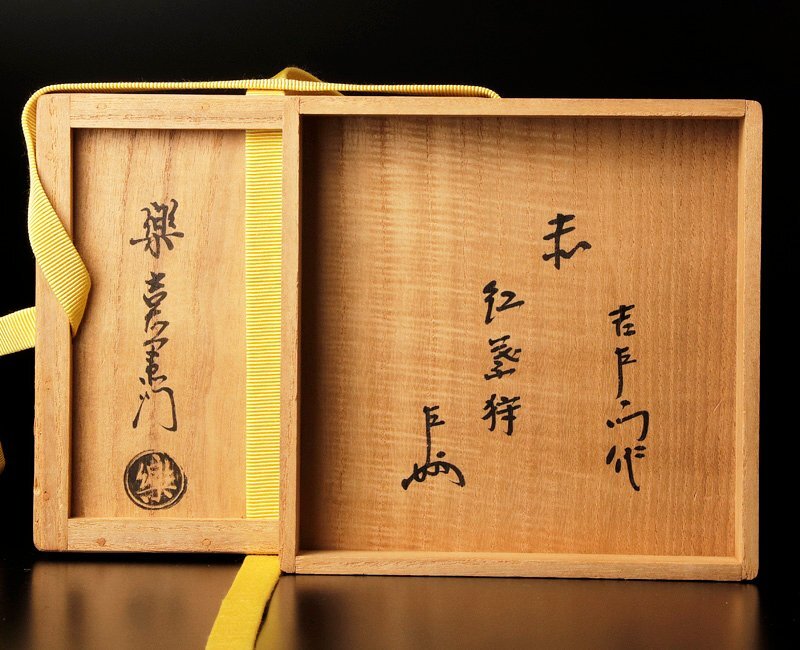 吉左衛門作
赤
紅葉狩
左
樂 吉左衛門
樂